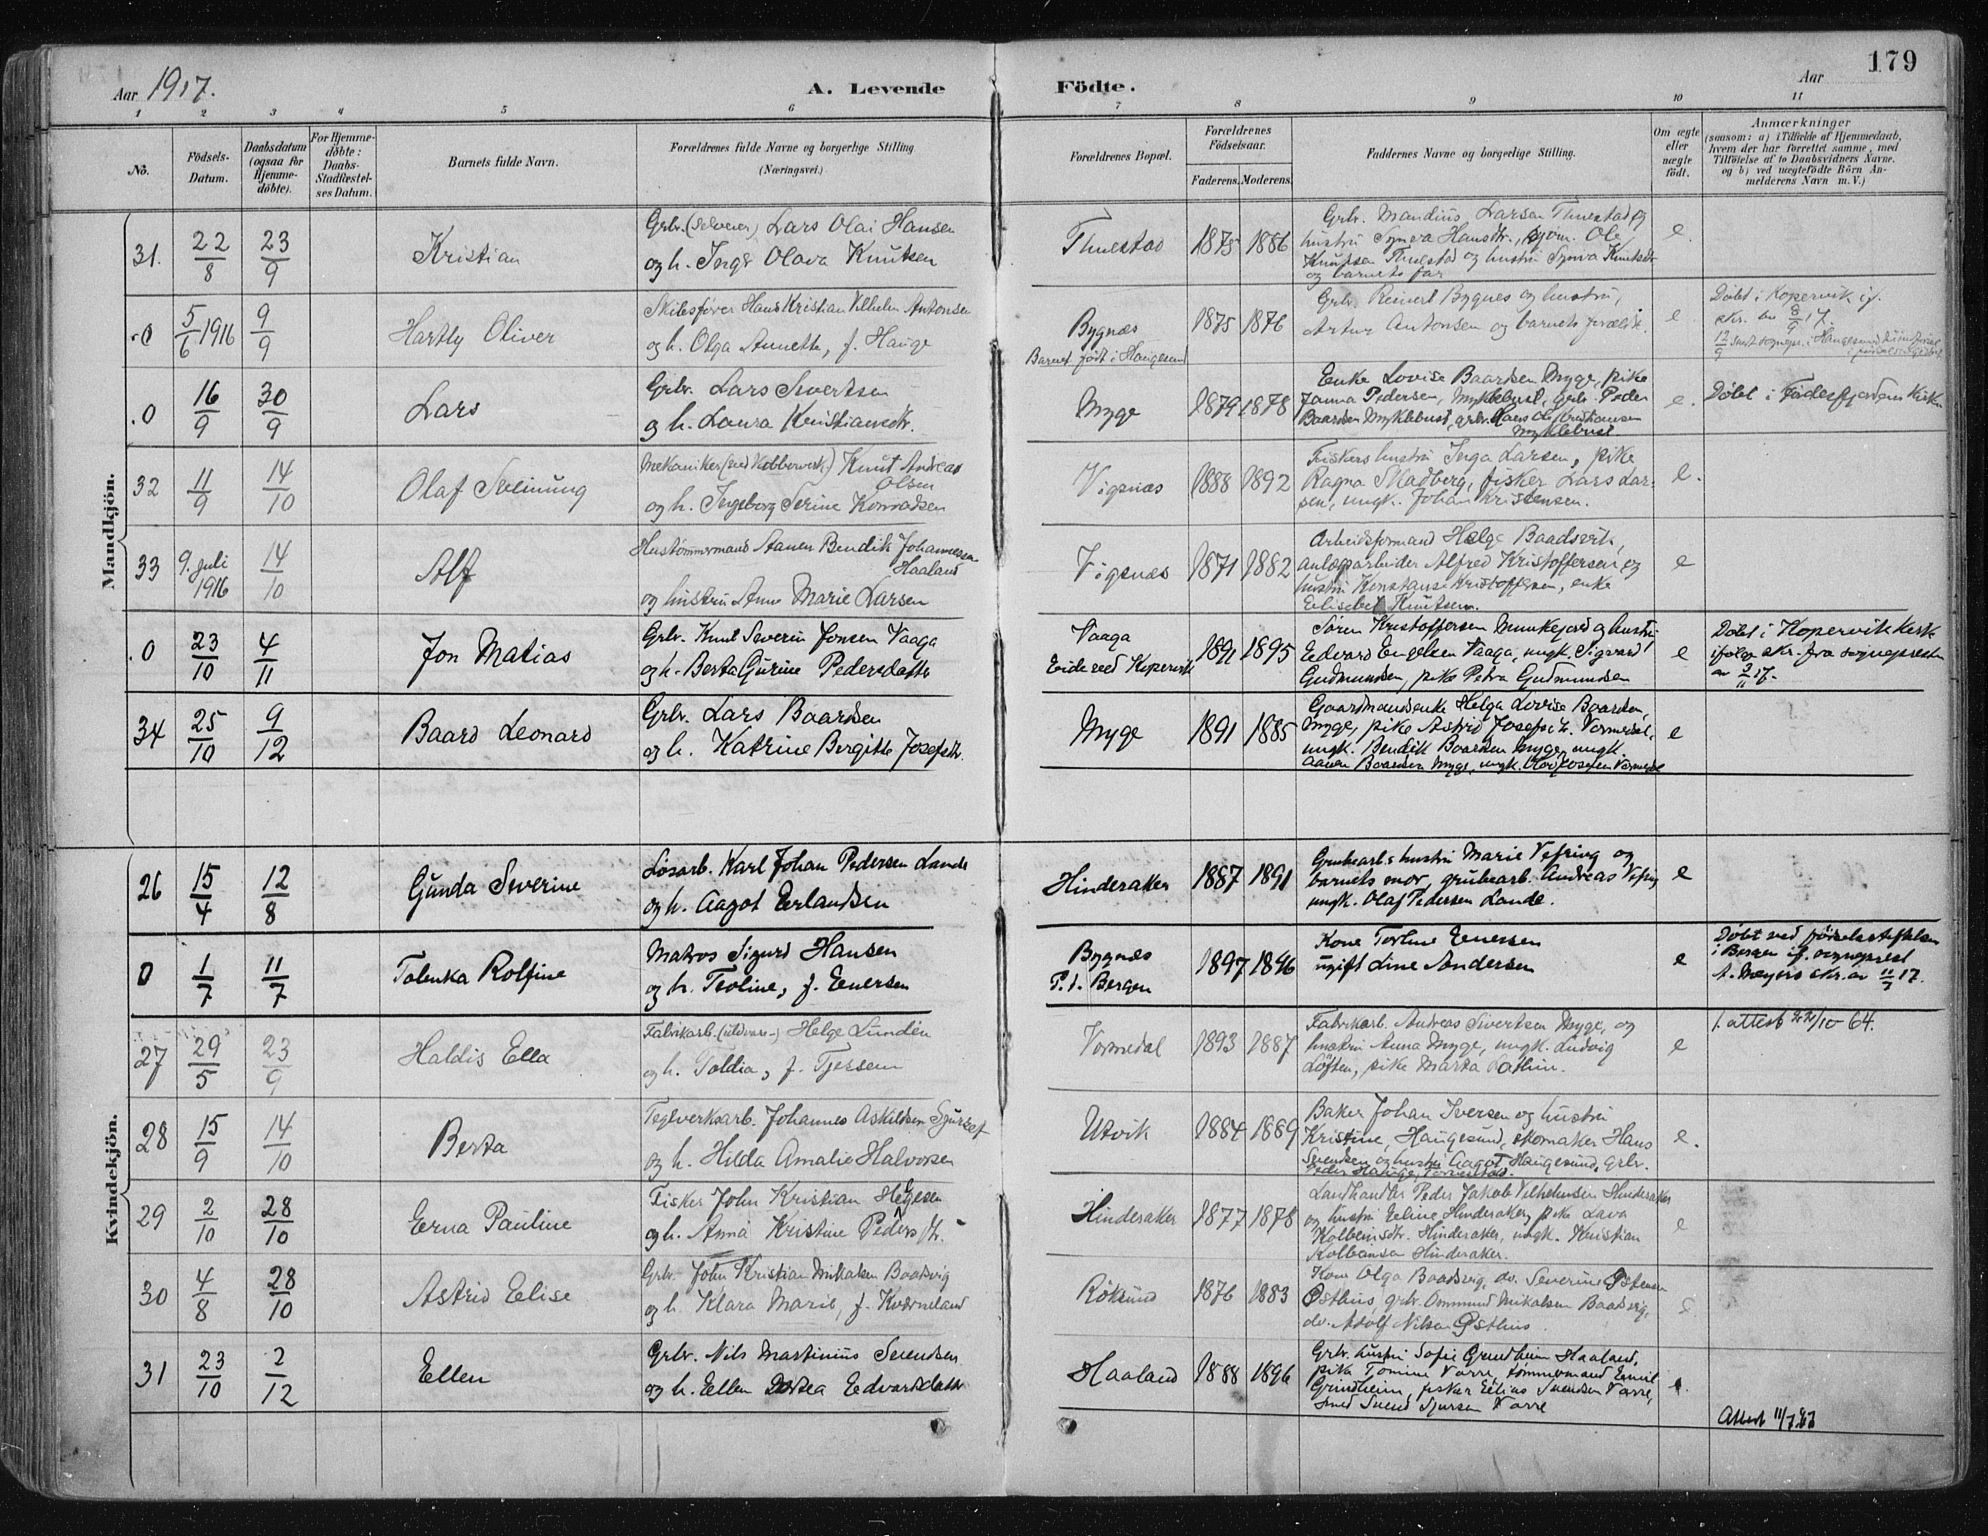 179
Aar 1917.
A. Levende Födte.
Aar
1 2 3 4 5 6 7 8 9 10 11
No.
Födsels-Datum.
Daabsdatum (ogsaa for Hjemme-döbte).
For Hjemme-döbte: Daabs-Stadfæstel-ses Datum.
Barnets fulde Navn.
Forældrenes fulde Navne og borgerlige Stilling (Næringsvei.)
Forældrenes Bopæl.
Forældrenes Födselsaar.
Faderens. Moderens.
Faddernes Navne og borgerlige Stilling.
Om ægte eller uægte födt.
Anmærkninger
(saasom: a) i Tilfælde af Hjemmedaab, hvem der har forrettet samme, med Tilföielse af to Daabsvidners Navne. og b) ved uægtefödte Börn An-melderens Navn m. V.)
Mandkjön.
31. 22/8 23/9 Kristian
Grbr. (Selveier) Lars Olai Hansen
og h. Inger Olava Knutsen
Thuestad 1875 1886
Grbr. Mandius Larsen Thuestad og
hustru Synva Hansdtr., Ole
Knutsen Thuestad og hustru Synva Knutsdtr
og barnets far
e.
.0 5/6 1916 9/9 Hartly Oliver
Skibsfører Hans Kristian Vilhelm Antonsen
og h. Olga Annette, f. Hauge
Bygnæs
Barnet født i Haugesund
1875 1876
Grbr. Reinert Bygnes og hustru,
Artur Antonsen og barnets forældre.
e
Døbt i Kopervik if.
skr. av 8/9 17.
.0 16/9 30/9 Lars
Grbr. Lars Sivertsen
og h. Laura Kristiansdtr.
Myge 1879 1878
Enke Lovise Baardsen Myge, pike
Janna Pedersen, Myklebust, grbr. Peder
Baardsen Myklebust, grbr. Hans Olaf Kristiansen
Myklebust
e.
Døbt i Førdesfjorden Kirke
32 11/9 14/10 Olaf Sveinung
Mekaniker (ved Kobberverk) Knut Andreas
Olsen
og h. Ingeborg Serine Konradsen
Vigsnæs 1888 1892
Fiskers hustru Inga Larsen, pike
Ragna Skadberg, fisker Lars Lar-
sen, ungk. Johan Kristensen.
e.
33 9. juli 1916 14/10 Alf
Hustømmermand Aanen Bendik Johannessen
Haaland
og hustru Anne Marie Larsen
Vigsnæs 1871 1882
Arbeidsformand Helge Baadsvik,
anlægsarbeider Alfred Kristoffersen og
hustru Konstanse Kristoffersen, enke
Elisabet Knutsen.
e
.0 23/10 4/11 Jon Matias
Grbr. Knut Severin Jonsen Vaaga
og h. Berta Gurine Pedersdatter
Vaaga
Eide ved Kopervik
1891 1895
Søren Kristoffersen Munkejord og hustru,
Edvard Engelsen Vaaga, ungk. Sigvard
Gudmundsen, pike Petra Gudmundsen
e
Døbt i Kopervik Kirke
ifølge skr. fra sognepresten
av 9/11 17.
34 25/10 9/12 Baard Leonard
Grbr. Lars Baardsen
og h. Katrine Bergitte Josefsdtr.
Myge 1891 1885
Gaardmandsenke Helga Lovise Baardsen,
Myge, pike Astrid Josefsdtr. Vormedal,
ungk. Bendik Baardsen Myge, ungk.
Aanen Baardsen Myge, ungk. Olai Josefsen Vormedal
e
Kvindekjön.
26 15/4 12/8 Gunda Severine
Løsarb. Karl Johan Pedersen Lande
og h. Aagot Erlandsen
Hinderaker 1887 1891
Grubearb.s hustru Marie Vefring og
barnets mor, grubearb. Andreas Vefring
ungk. Olaf Pedersen Lande.
e
0 1/7 11/7 Tolenka Rolfine
Matros Sigurd Hansen
og h. Teoline, f. Enersen
Bygnæs
P.t. Bergen
1897 1896
Kone Torline Enersen
ugift Line Andersen
e
Døbt ved fødselsstiftelsen
i Bergen if. sogneprest
A. Meyers skr. av 11/7 17.
27 29/5 23/9 Haldis Ella
Fabrikarb. Helge Lunden
og h. Toldia, f. Tjersen
Vormedal 1893 1887
Fabrikarb. Andreas Sivertsen Myge, og
hustru Anna Myge, ungk. Ludvig
Løften, pike Marta Lothin.
e
1. attest 22/10-64.
28 15/9 14/10 Berta
Teglverksarb. Johannes Askildsen
og h. Hilda Amalie Halvorsen
Utvik 1884 1889
Baker Johan Iversen og hustru
Kristine, Haugesund, skomaker Hans
Svendsen og hustru Aagot Haugesund, grbr.
Peder Hauge,
e.
29 2/10 28/10 Erna Pauline
Fisker John Kristian Helgesen
og h. Anna Kristine Pedersdtr.
Hinderaker 1877 1878
Landhandler Peder Jakob Vilhelmsen Hinderaker
og hustru Eline Hinderaker, pike Lava
Kolbeinsdtr. Hinderaker, ungk. Kristian
Kolbensen Hinderaker.
e
30 4/8 28/10 Astrid Elise
Grbr. John Kristian Mikalsen Baadsvig
og h. Klara Marie, f. Kverneland
Røksund 1876 1883
Kone Olga Baadsvig, do. Severine
Østhus, grbr. Ommund Mikalsen Baadsvig,
do. Adolf Nilsen Østhus.
e
31 23/10 2/12 Ellen
Grbr. Nils Martinius Svendsen
og h. Ellen Dortea Edvardsdatter
Haaland 1888 1896
Grbr. hustru Sofie Grindheim Haaland,
pike Tomine Vorre, tømmermand Emil
Grindheim, fisker Elias Svendsen Vorre,
smed Svend Sjursen Vorre
e.
Attest 11/7.67